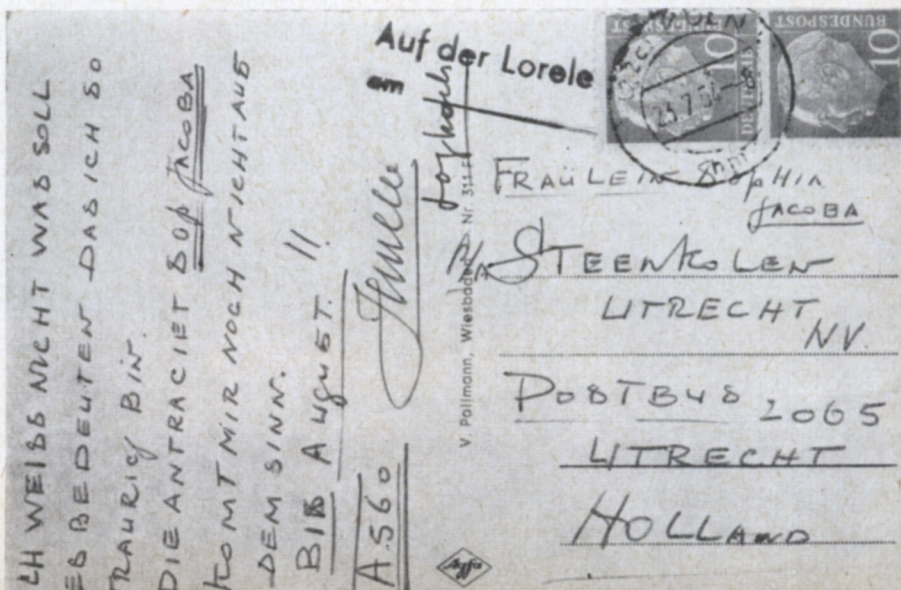 ICH WEISS NICHT WAS SOLL
ES BEDEUTEN DAS ICH SO
TRAURIG BIN.
DIE ANTRACIET SOP JACOBA
KOMT MIR NOCH NICHT AUS
DEM SINN.
BIS AUGUST. !!
A.560
Auf der Lorele
am
V. Pollmann, Wiesbaden Nr. 311
Agfa
BUNDESPOST
10
10
23.7.5
FRAÜLEIN SOPHIA
JACOBA
P/A STEENKOLEN
UTRECHT
NV.
POSTBUS 2065
UTRECHT
HOLLAND